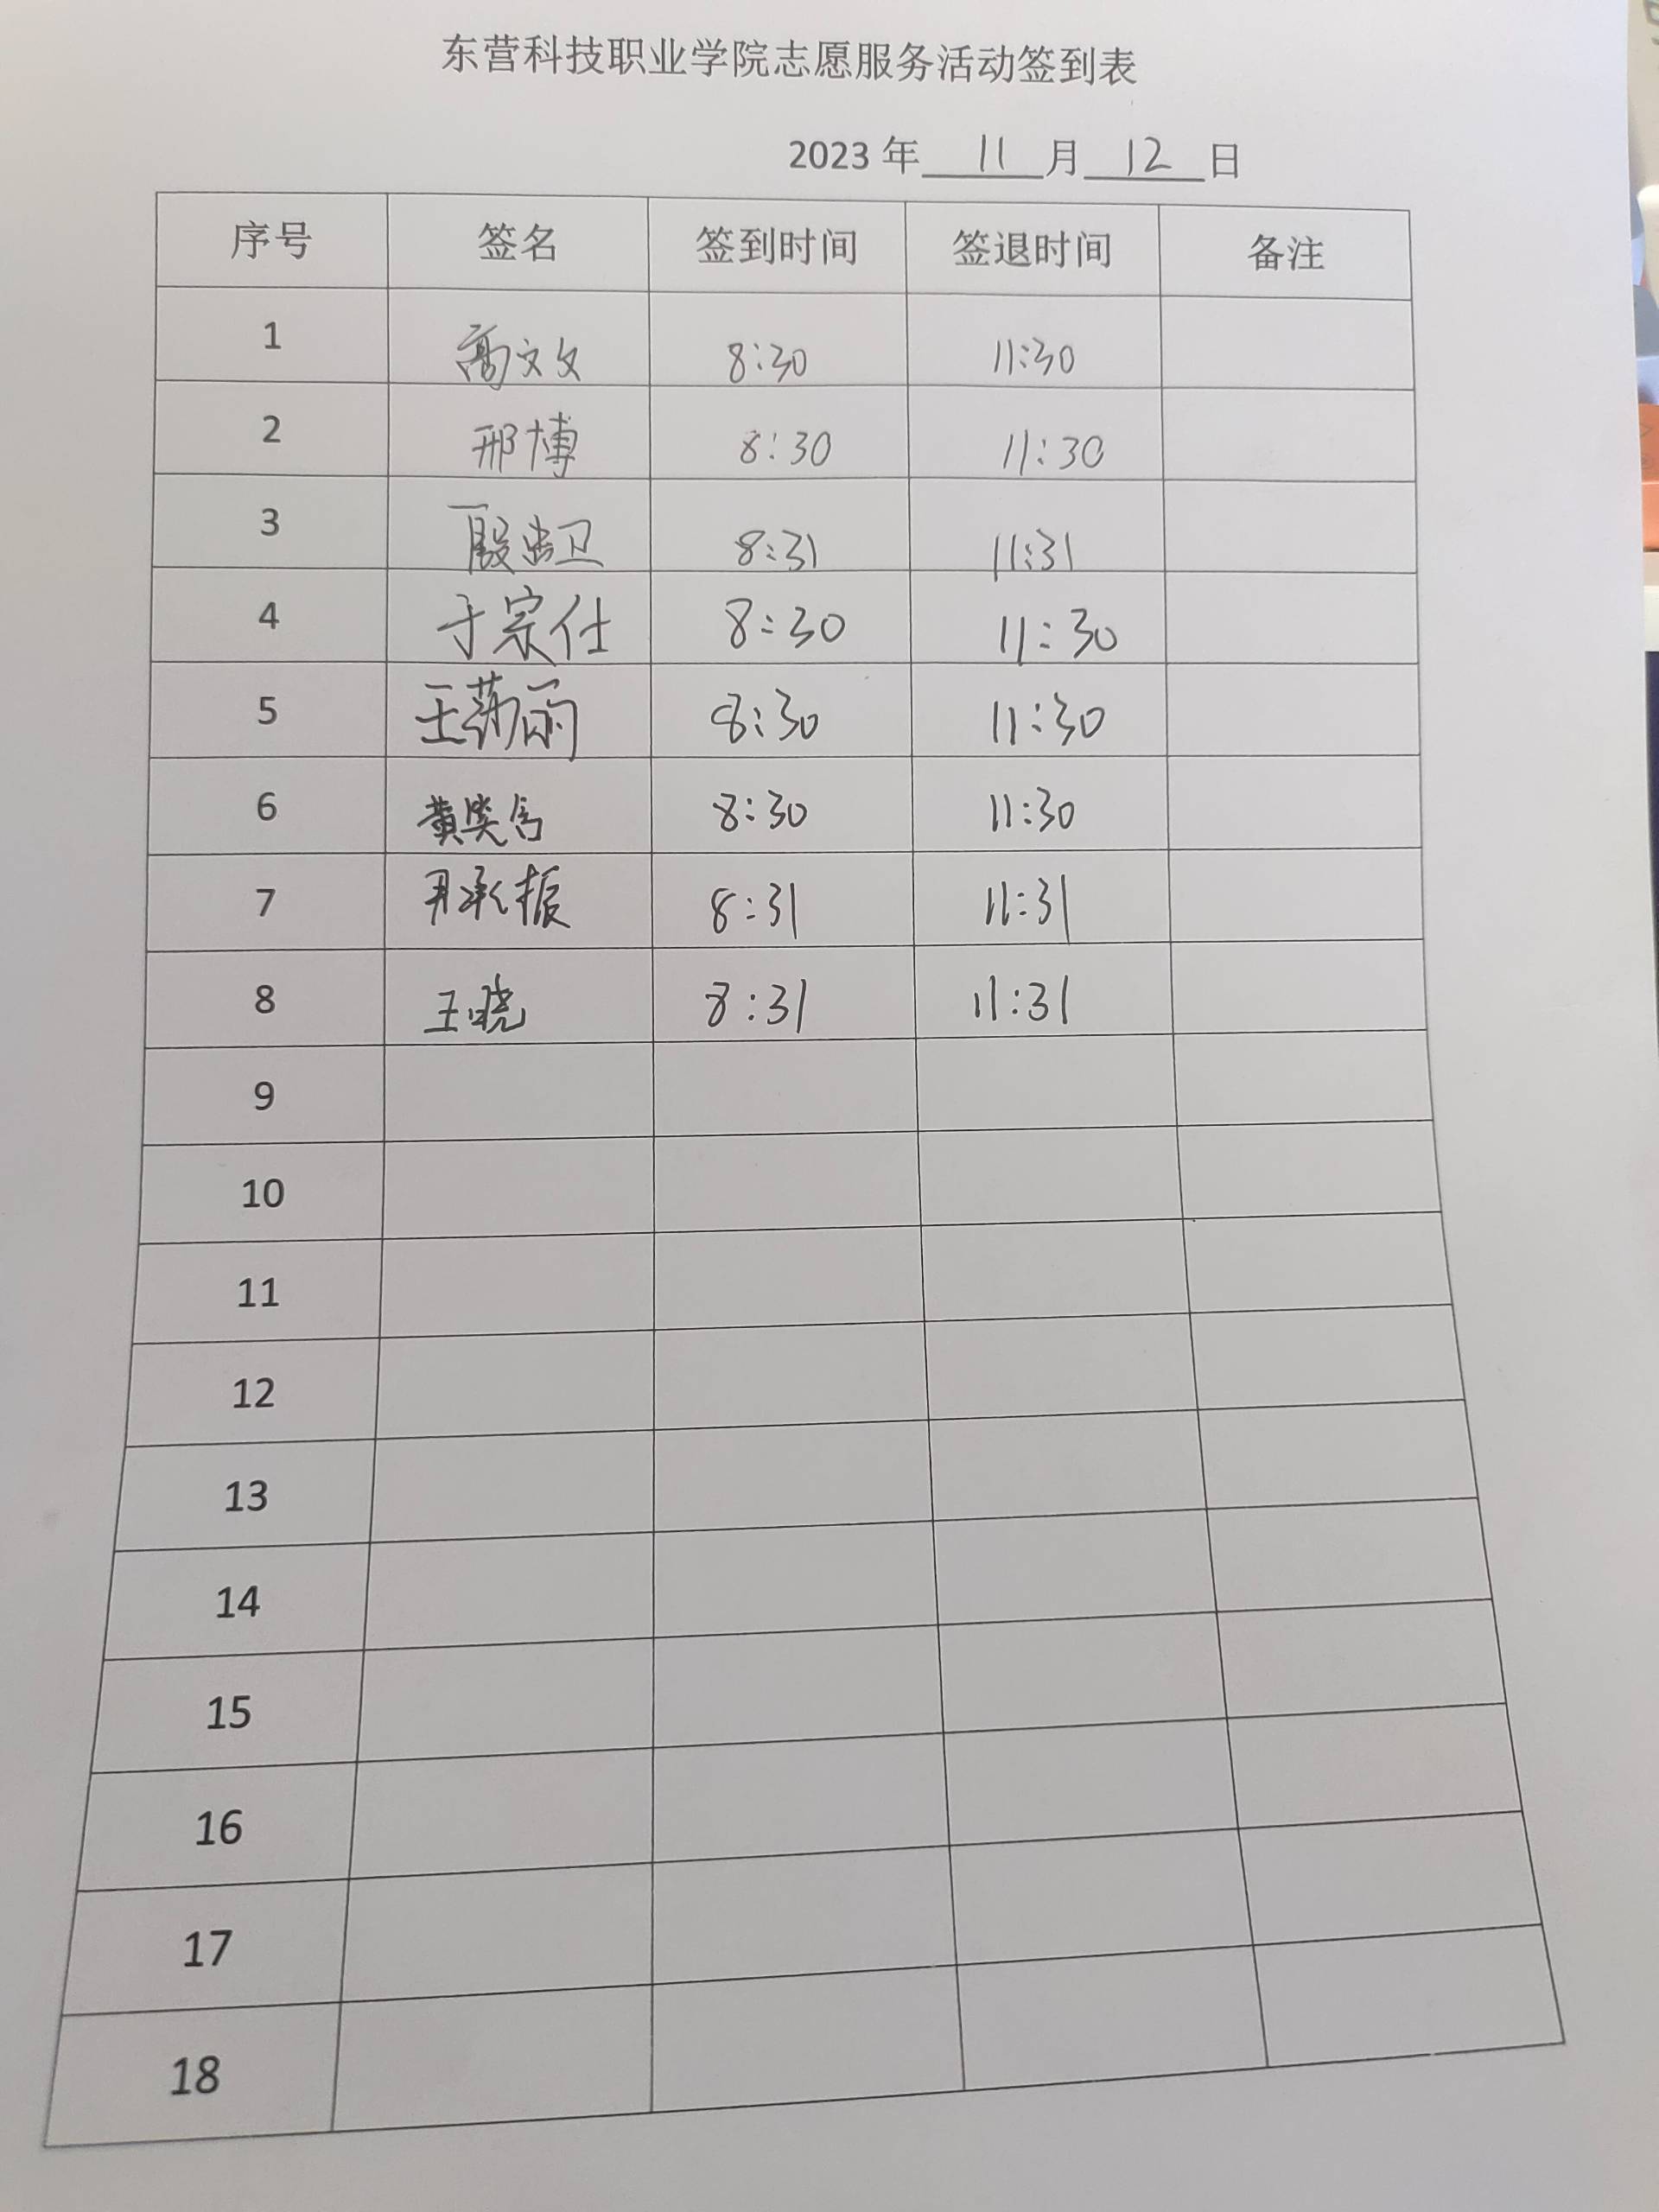 东营科技职业学院志愿服务活动签到表
2023 年 11 月 12 日
序号 签名 签到时间 签退时间 备注
1 高文文 8:30 11:30
2 邢博 8:30 11:30
3 殷忠卫 8:31 11:31
4 于宗仕 8:30 11:30
5 王菊丽 8:30 11:30
6 黄奕 8:30 11:30
7 尹承振 8:31 11:31
8 王晓 8:31 11:31
9
10
11
12
13
14
15
16
17
18